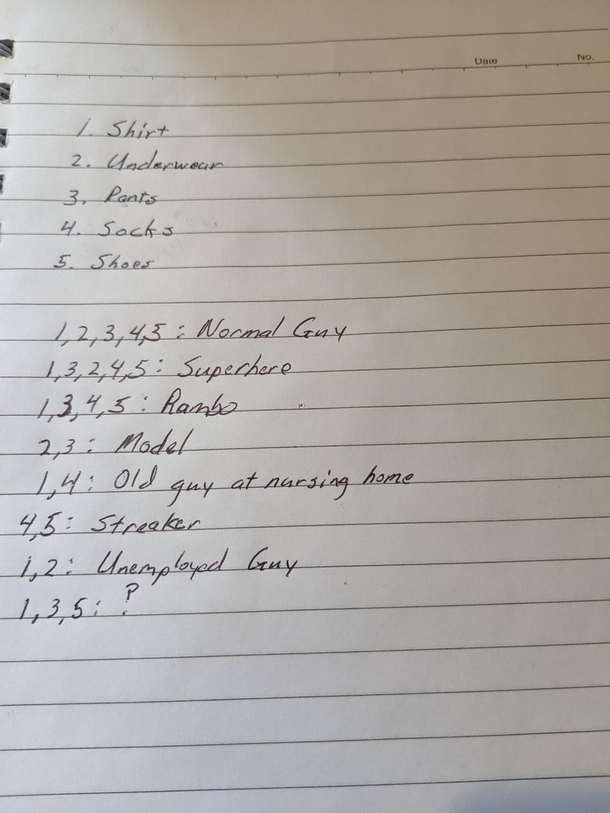 Date No.
1. Shirt
2. Underwear
3. Pants
4. Socks
5. Shoes
1,2,3,4,5: Normal Guy
1,3,2,4,5: Superhero
1,3,4,5: Rambo
2,3: Model
1,4: Old guy at nursing home
4,5: Streaker
1,2: Unemployed Guy
1,3,5: ?